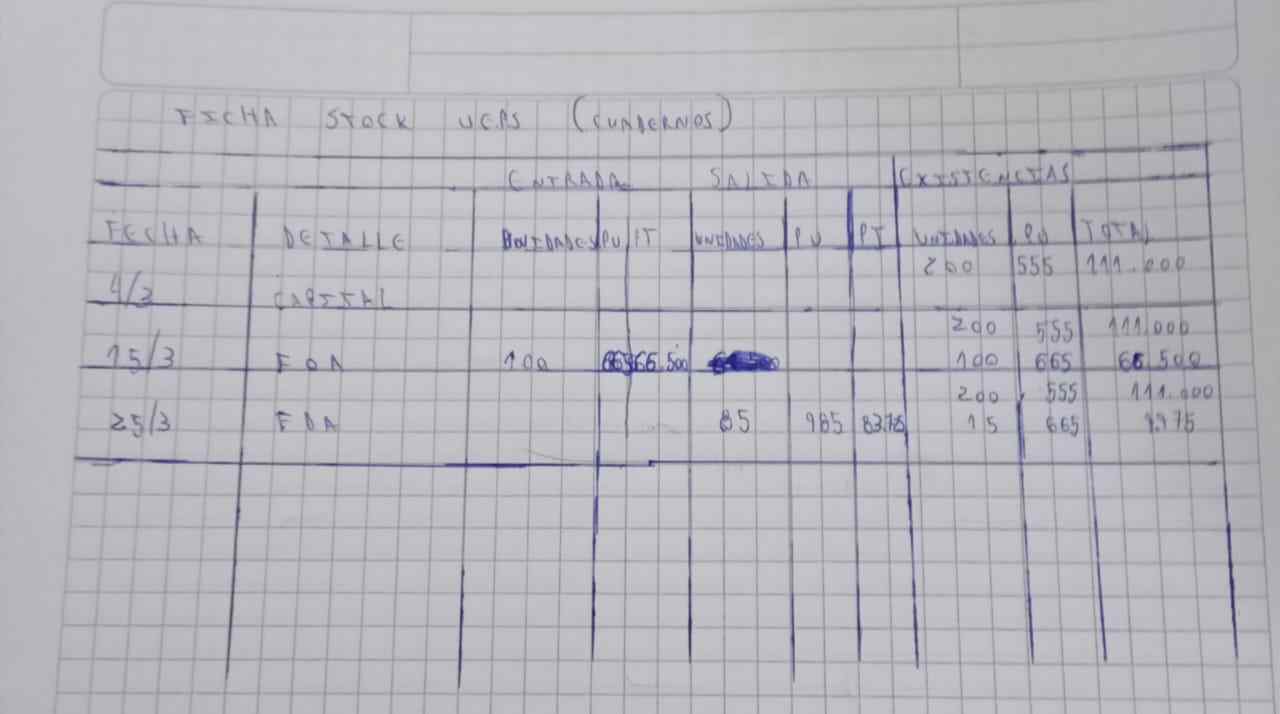 FICHA STOCK UEPS (CUADERNOS)
ENTRADA SALIDA EXISTENCIAS
FECHA DETALLE UNIDADES PU PT UNIDADES PU PT UNIDADES PU TOTAL
200 555 111.000
4/3 CAPITAL
200 555 111.000
15/3 FOA 100 665 66.500 100 665 66.500
200 555 111.000
25/3 FDA 85 985 15 665